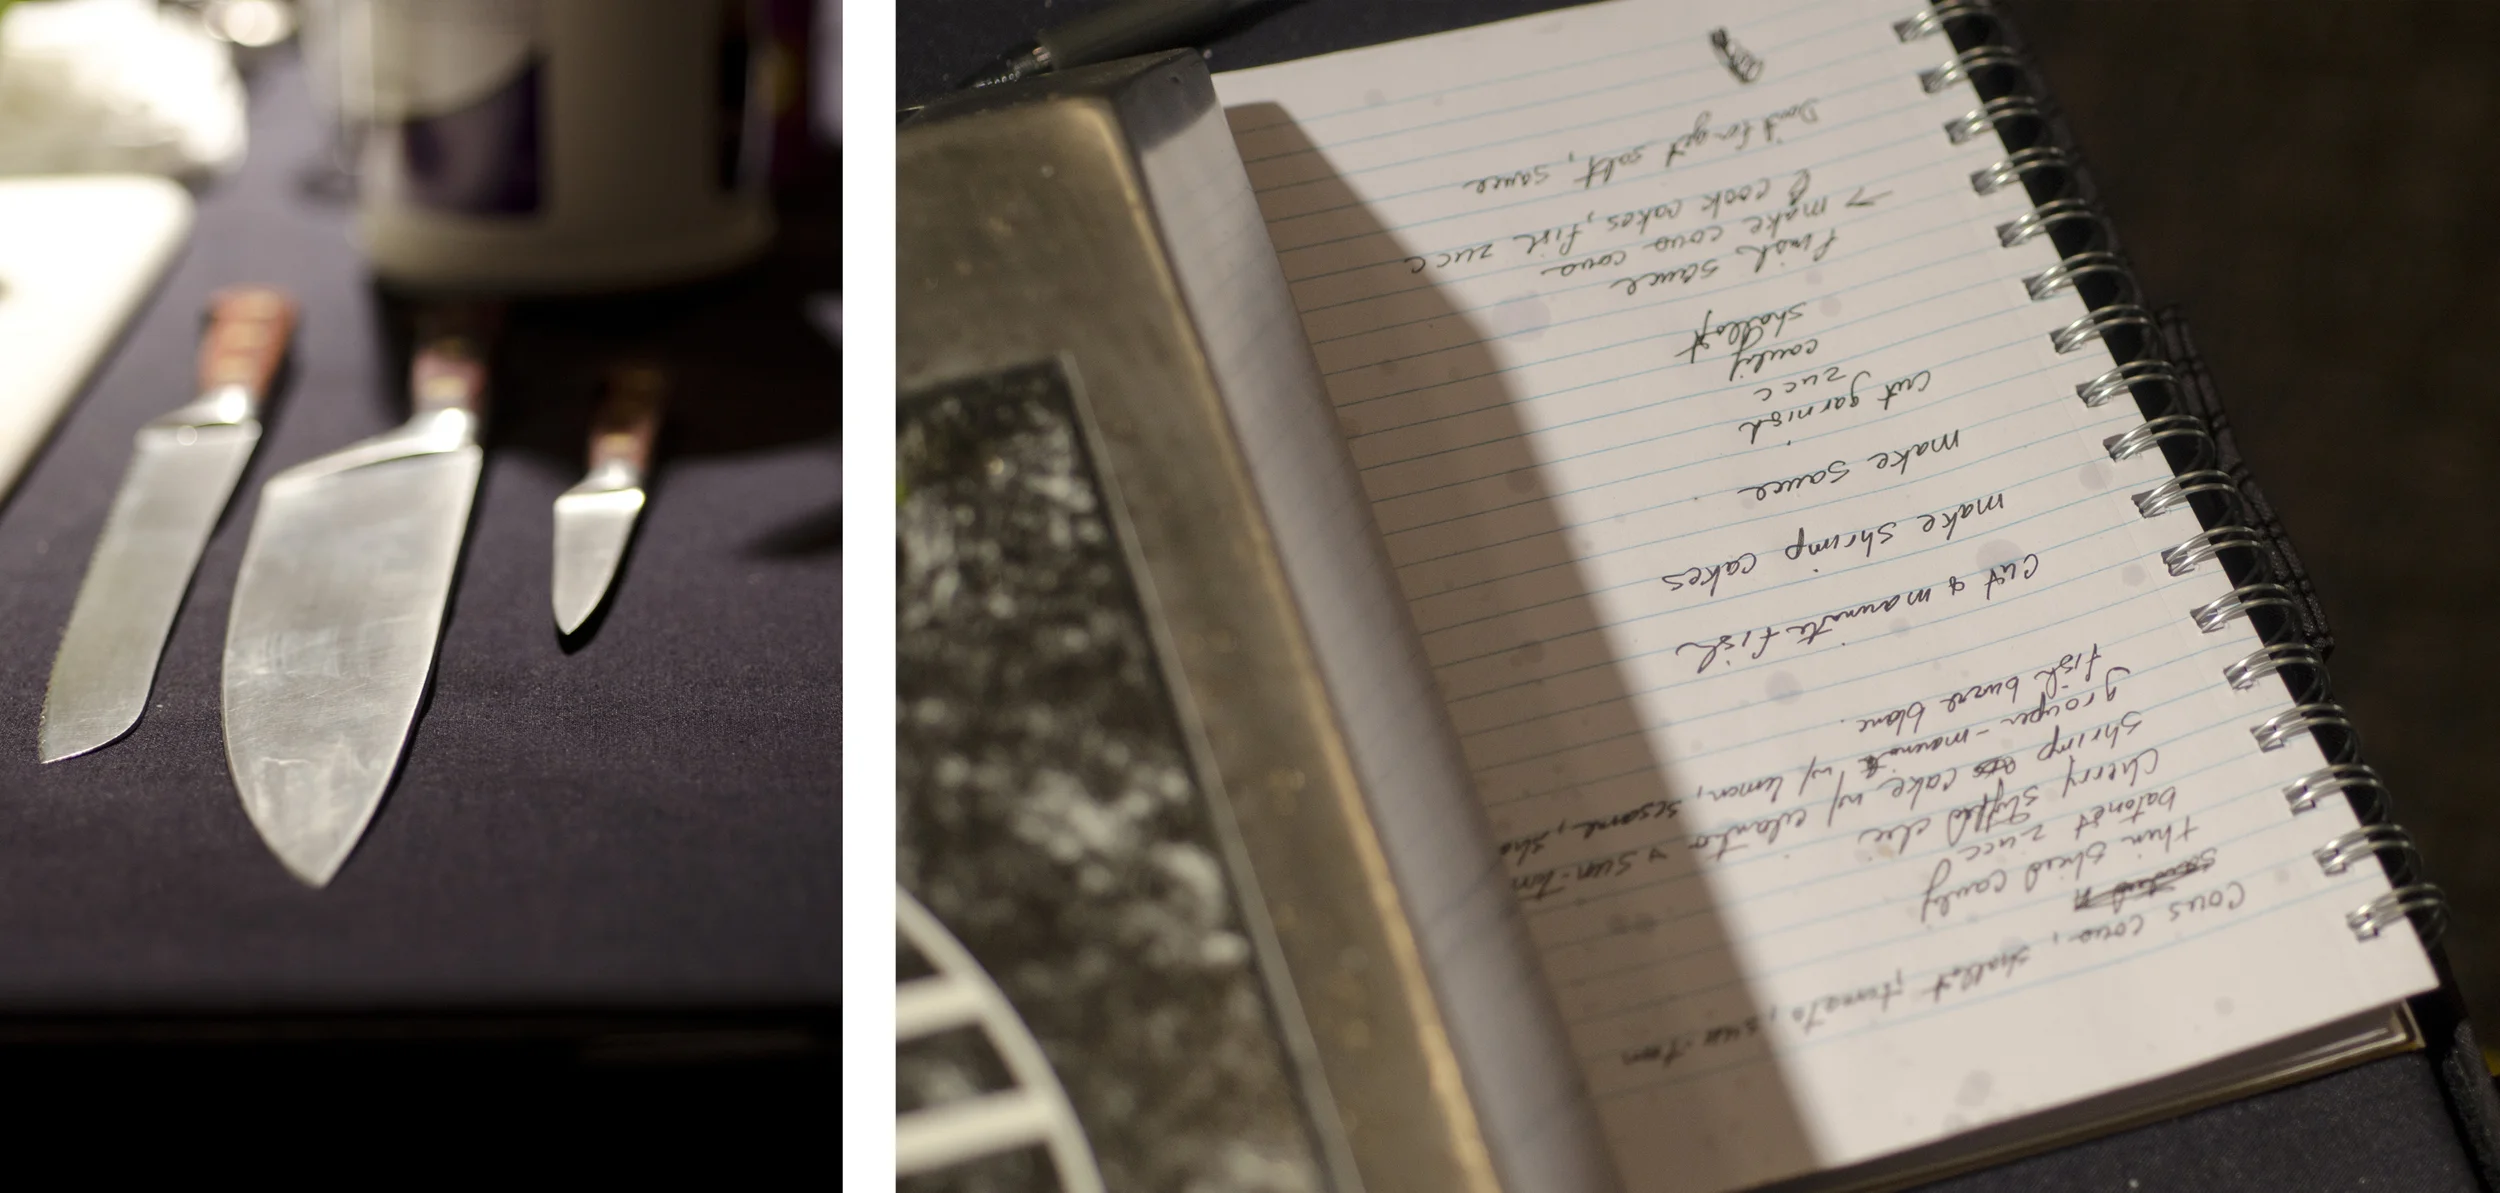 Cous cous, shallot, tomato, sun-tom
thin sliced cauly
batonet zucc
cherry stuffed
shrimp cake w/ cilantro & sun-tom
grouper - marinate w/ lemon, sesame, sha
fish burre blanc.
cut & marinate fish
make shrimp cakes
make sauce
cut garnish
zucc
cauly
shallot
finish sauce
→ make cous cous
& cook cakes, fish, zucc
Don't forget salt, sauce